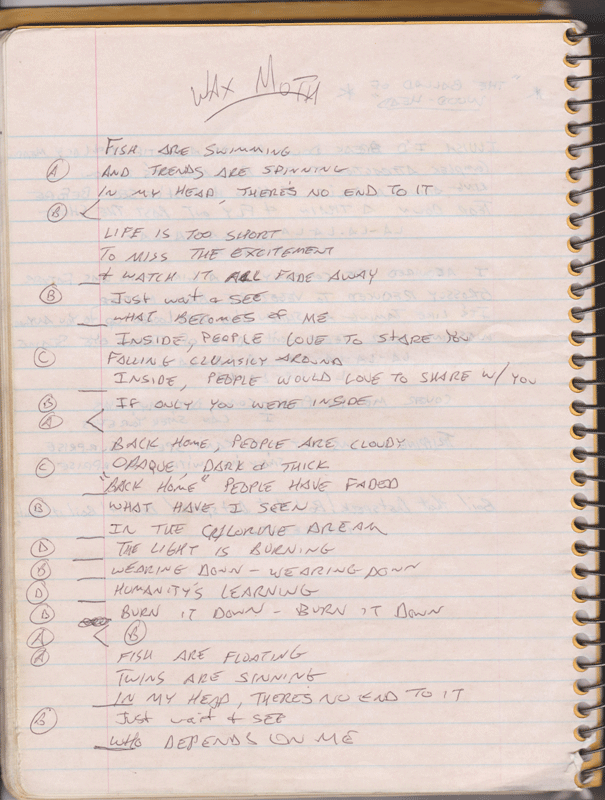 WAX MOTH
FISH ARE SWIMMING
A AND TRENDS ARE SPINNING
IN MY HEAD, THERE'S NO END TO IT
B <
LIFE IS TOO SHORT
TO MISS THE EXCITEMENT
+ WATCH IT ALL FADE AWAY
B JUST WAIT & SEE
WHAT BECOMES OF ME
INSIDE, PEOPLE LOVE TO SHARE YOU
C FALLING CLUMSILY AROUND
INSIDE, PEOPLE WOULD LOVE TO SHARE W/ YOU
B IF ONLY YOU WERE INSIDE
A <
BACK HOME, PEOPLE ARE CLOUDY
C OPAQUE, DARK & THICK
"BACK HOME" PEOPLE HAVE FADED
B WHAT HAVE I SEEN
IN THE CHLORINE DREAM
D THE LIGHT IS BURNING
B WEARING DOWN - WEARING DOWN
D HUMANITY'S LEARNING
B BURN IT DOWN - BURN IT DOWN
A < B
A FISH ARE FLOATING
TWINS ARE SINNING
IN MY HEAD, THERE'S NO END TO IT
B JUST WAIT & SEE
WHO DEPENDS ON ME